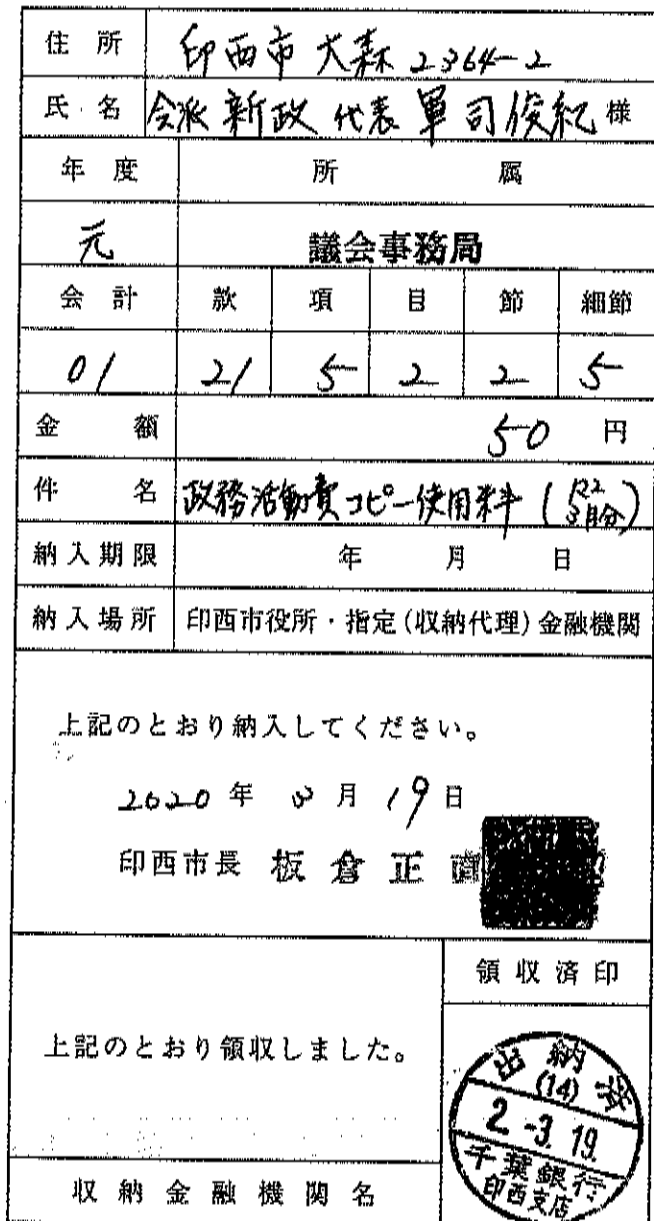 住所 印西市大森2364-2
氏名 会派 新政 代表 軍司俊紀 様
年度 所属
元 議会事務局
会計 款 項 目 節 細節
01 21 5 2 2 5
金額 50 円
件名 政務活動費コピー使用料 (R2 3月分)
納入期限 年 月 日
納入場所 印西市役所・指定(収納代理)金融機関
上記のとおり納入してください。
2020年 3月 19日
印西市長 板倉正直
領収済印
上記のとおり領収しました。
出納済
(14)
2.-3.19.
千葉銀行
印西支店
収納金融機関名